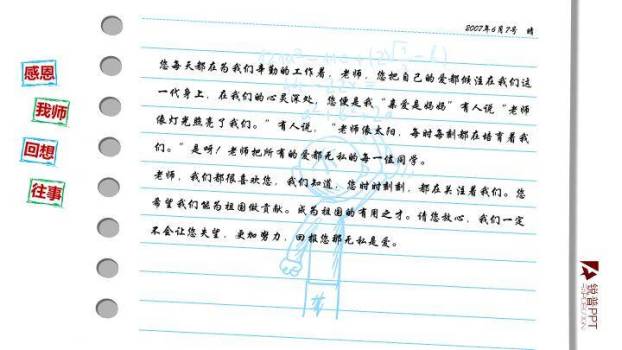 2007年6月7号 晴
感恩
我师
回想
往事
您每天都在为我们辛勤的工作着，老师，您把自己的爱都倾注在我们这
一代身上，在我们的心灵深处，您便是我“亲爱是妈妈”有人说“老师
像灯光照亮了我们。”有人说，“老师像太阳，每时每刻都在培育着我
们。”是呀！老师把所有的爱都无私的每一位同学。
老师，我们都很喜欢您，我们知道，您时时刻刻，都在关注着我们。您
希望我们能为祖国做贡献。成为祖国的有用之才。请您放心，我们一定
不会让您失望，更加努力，回报您那无私是爱。
锐普PPT